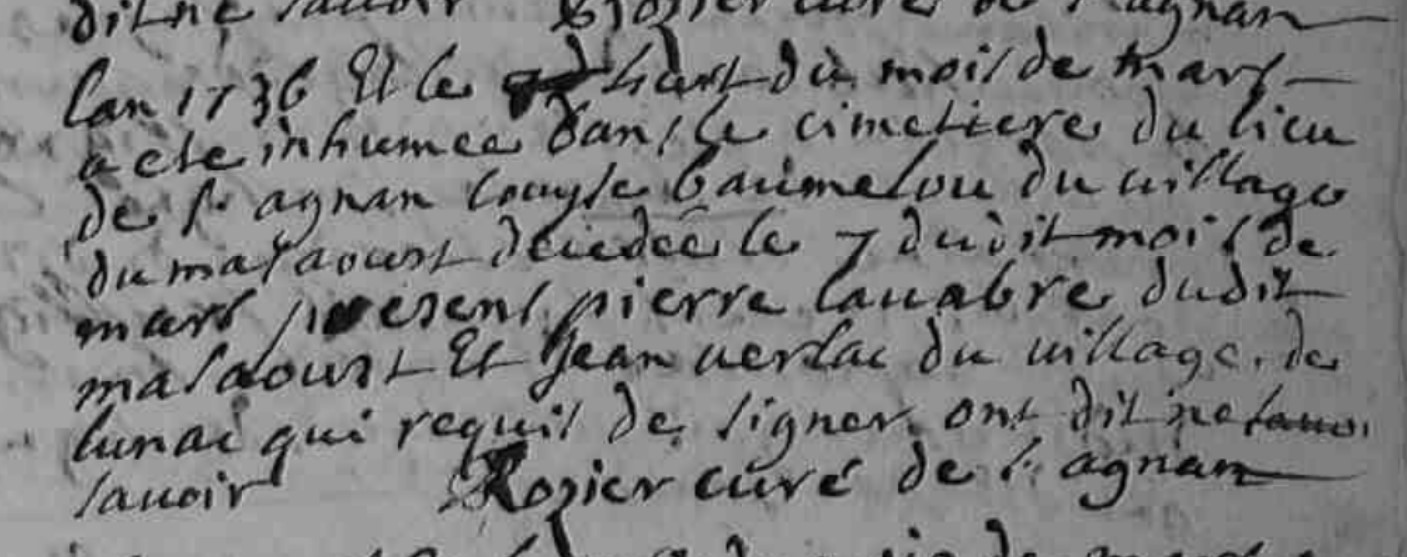 dit ne sauoir Rosier curé de s. agnan
lan 1736 Et le huit du mois de mars
a ete inhumee dans le cimetiere du lieu
de st agnan louyse baumelou du uillage
du masaourt decedeé le 7 dudit mois de
mars presens pierre lauabre dudit
masaourt Et Jean uerlac du uillage de
lunac qui requis de signer ont dit ne sauoi
sauoir Rosier curé de s. agnan